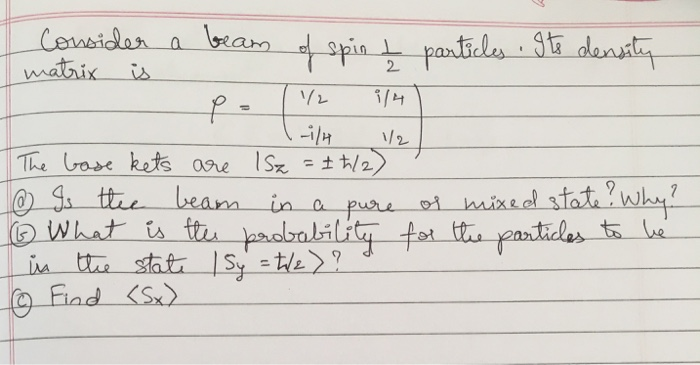 Consider a beam of spin 1/2 particles. Its density
matrix is
ρ = ( 1/2 i/4
-i/4 1/2 )
The base kets are |Sz = ± ħ/2⟩
(a) Is the beam in a pure or mixed state? Why?
(b) What is the probability for the particles to be
in the state |Sy = ħ/2⟩?
(c) Find ⟨Sx⟩